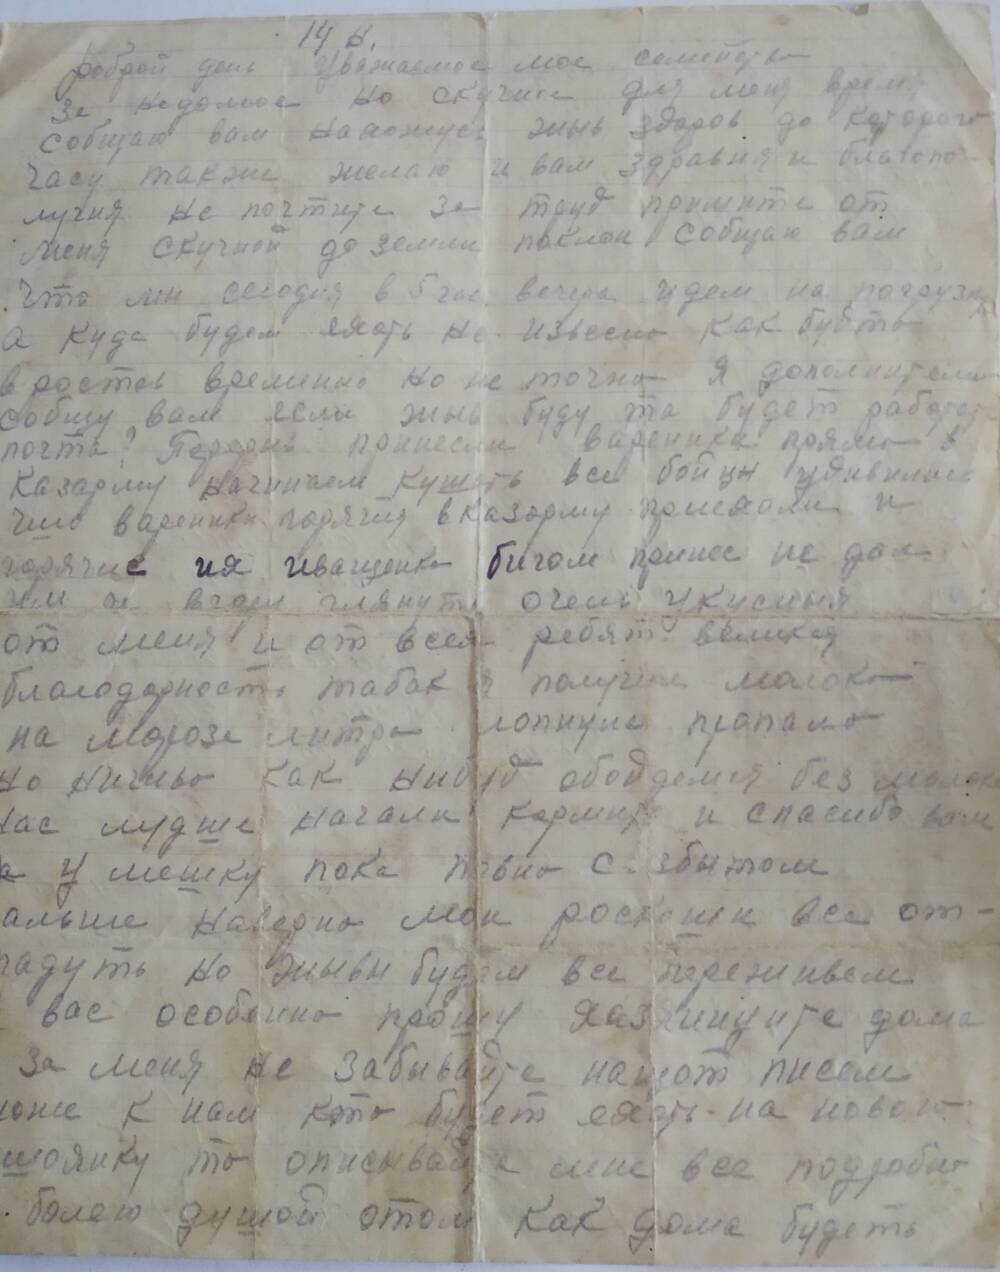 14 н.
Доброй день Уважаемое мое семейства
за недолгое но скучное для меня время
собщаю вам нахожусь жыв здоров до которого
часу также желаю и вам здравия и благопо-
лучия не почтите за труд примите от
меня скучной до земли поклон собщаю вам
Что мы сегодня в 5 час вечера идем на погрузку
а куда будем ехать не известно как бутто
в ростов временно но не точно Я дополнительно
собщу вам если жыв буду та будет работать
почта? принесли вареника прямо в
казарму начинаем кушать все бойцы удивились
что вареники горячия в казарму приехали и
горячие их иващенко бигом принес не дал
им и очень укусныя
от меня и от всех ребят великая
благодарность табак я получил молоко
на морозе литра лопнула пропало
но ничего как нибуд обойдемся без молока
нас лудше начали кормить и спасибо вам
а у мешку пока полно с збытом
альше наверно мои роскошы все от-
падуть но жывы будем все переживем
вас особенно прошу хазяинуите дома
за меня не забывайте нащот писем
тоже к нам кто будет ехать на новою
шоянку то описывайте мне все подробно
болею душой отом как дома будеть